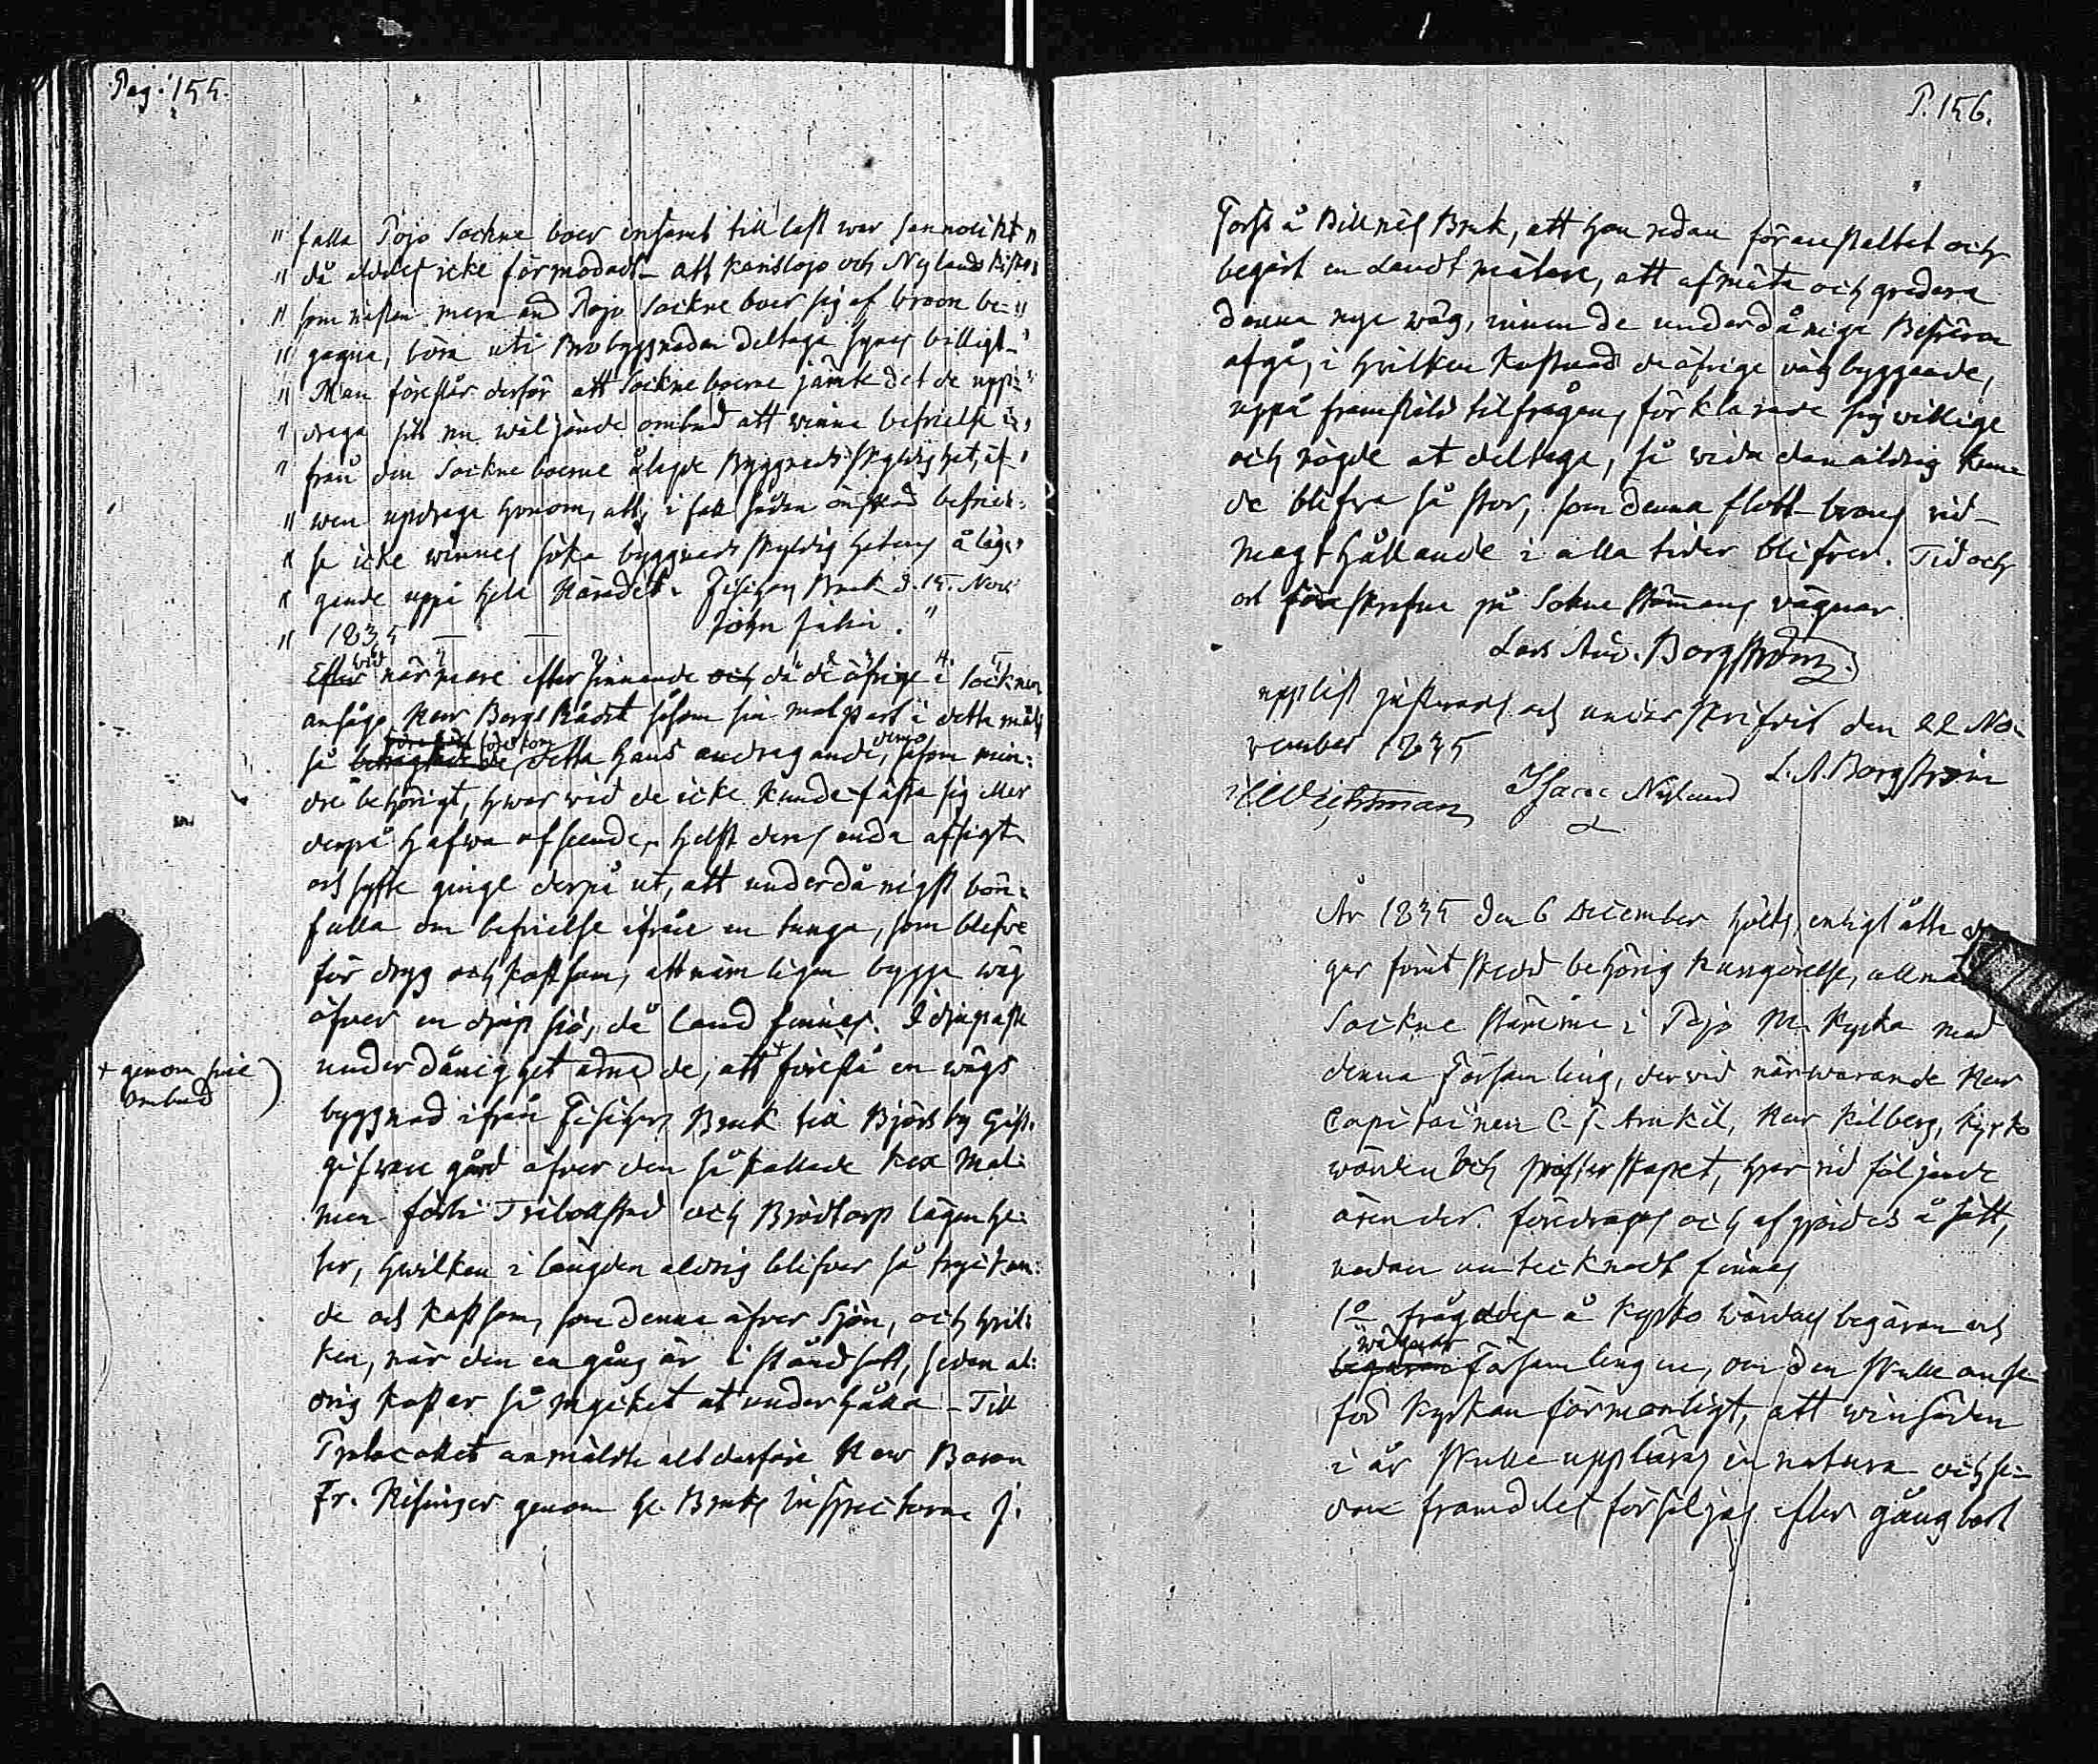 Pag. 155.
" falla Pojo Sockne boer ensamt till last war sannolikt "
" då aldeles icke förmodadt - att Karislojo och Nylands
" som nästan mera änd Pojo Sockne boer sig af broon be- "
" gagna, böra uti Brobyggnaden deltaga synes billigt -
" Man föreslår derför att Sockneboerne jämte det de upp-
" draga sitt nu wäljande ombud att winna befrielse
" från den Sockneboerne ålagde Byggnads skyldighet, äf-
" wen updraga honom, att, i fall sådan önskad befriel-
" se icke winnes söka byggnads skyldighetens åläg-
" gande uppå hela Häradet. Fiskars Bruk d. 15. Nov.
" 1835 — — John Julin. "
Efter wid närmare eftersinnande och då de öfrige i Socknen
ansågo Herr Bergs Rådet såsom sin motpart i detta mål,
så betragtade de förekom detta hans andragande, dem såsom min-
dre behörigt, hwar wid de icke kunde fästa sig eller
derpå hafwa afseende, helst deras enda afsigt
och syfte ginge derpå ut, att underdånigst bön-
falla om befrielse ifrån en tunga, som blefve
för dryg och kostsam, att nämligen bygga wäg
öfver en djup sjö, då land finnes. I djupaste
underdånighet ämnade, att + föreslå en wägs
+ genom sine
ombud )
byggnad ifrån Fiskars Bruk till Björsby Gäst-
gifware gård öfver den så kallade Kex Mal-
men förbi Trebollstad och Brödtorp lägenhe-
ter, hwilken i längden aldrig blifver så tryckan-
de och kostsam, som denna öfver Sjön, och hvil-
ken, när den en gång är i stånd satt, sedan al-
drig kostar så mycket at underhålla - Till
Protocollet anmälte alt derföre Herr Baron
Fr. Hisinger genom Hr Bruks Inspectoren J.
P. 156.
Forss å Billnäs Bruk, att han redan föranstaltat och
begärt en Landtmätare, att afmäta och gradera
denna nya wäg, innan de underdåniga Besvären
afgå, i hvilken kostnad de öfrige väg byggande,
uppå framstäld tilfrågan, förklarade sig willige
och nögde at deltaga, så wida den aldrig kun-
de blifva så stor, som denna flott-brons vid-
magthållande i alla tider blifver. Tid och
ort föreskrefne på Sokne Stämmans vägnar
Lars Aug. Borgström.
upplist justerades och underskrifvit den 22 No-
vember 1835
Isaac Nylund L. A. Borgström
År 1835 den 6 December hölts, enligt åtta
gar förut skedd behörig kungörelse, allmän
Sockne stämma i Pojo M. Kyrka med
denna Församling, dervid närwarande Herr
Capitainen C. F. Arnkil, Herr Kilberg, Kyrko
wärden och Prästerskapet, hvar vid följande
ärender föredrogos och afgjordes å sätt,
nedan antecknadt finnes
1o frågades å Kyrko wärdens begäran och
begäran wägnar Församlingen, om den skulle anse
för Kyrkan förmonligt, att winsäden
i år skulle uppbäras in natura och se-
dan framdeles försäljas efter gångbart